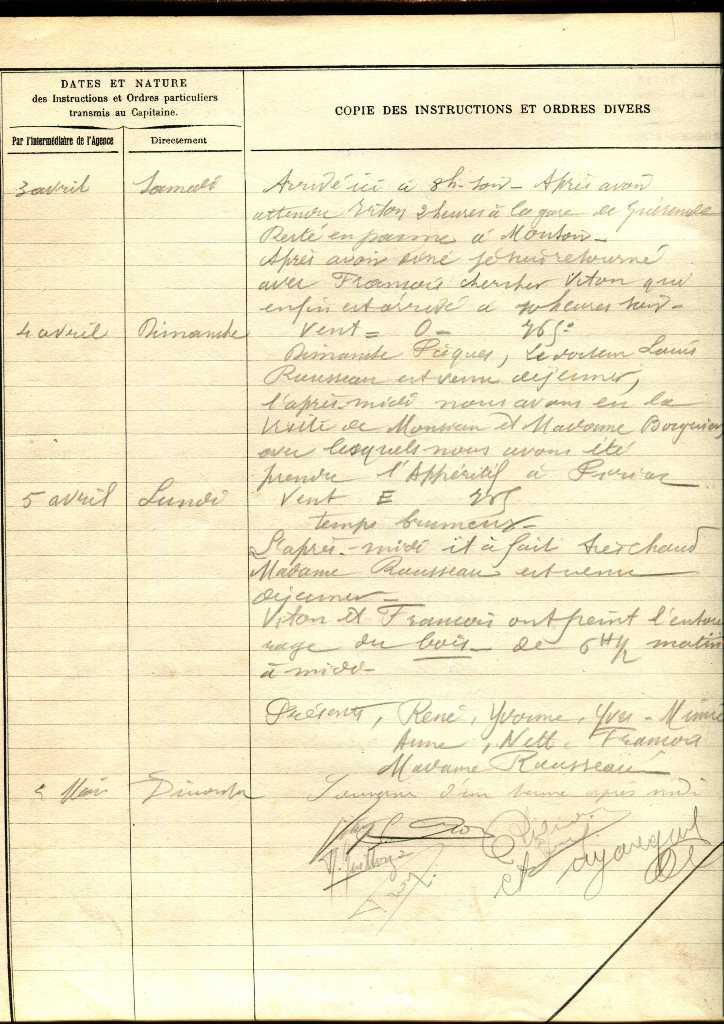 DATES ET NATURE
des Instructions et Ordres particuliers
transmis au Capitaine.
COPIE DES INSTRUCTIONS ET ORDRES DIVERS
Par l'Intermédiaire de l'Agence
Directement
3 avril Samedi Arrivé ici à 8h. soir - Après avoir
attendu Viton 2 heures à la gare de Guérande
Resté en panne à Montoir -
Après avoir diné je suis retourné
avec Francois chercher Viton qui
enfin est arrivé à 10 heures soir -
4 avril Dimanche Vent = O - 765°
Dimanche Pâques, Le docteur Louis
Rousseau est venu déjeuner,
l'après-midi nous avons eu la
Visite de Monsieur et Madame
avec lesquels nous avons été
prendre l'Appéritif à Piriac
5 avril Lundi Vent E 765
temps brumeux -
L'après-midi it à fait très chaud
Madame Rousseau est venue
déjeuner -
Viton et Francois ont peint l'entou
rage du bois - de 6H½ matin
à midi -
Présents, René, Yvonne, Yves - Mimie
Anne, Nell, Francois
Madame Rousseau
Mai après midi